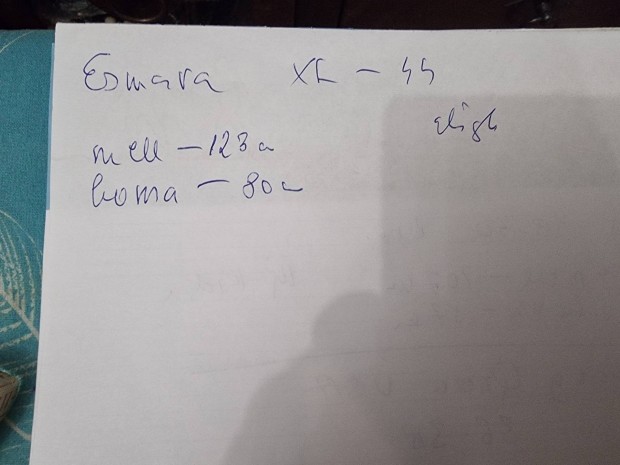 Esmara XL - 44
mell - 123 cm
- 80 cm